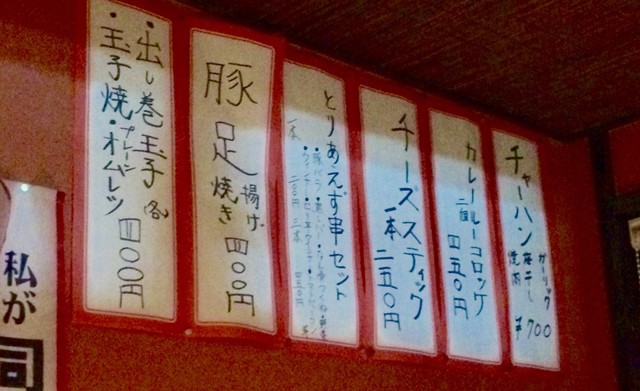 チャーハン
ガーリック
梅干し
焼肉
¥700
カレーコロッケ
二個
四五〇円
チーズスティック
一本 二五〇円
とりあえず串セット
豚足
揚げ
焼き
四〇〇円
・出し巻玉子(各)
・玉子焼・プレーンオムレツ
四〇〇円
私が